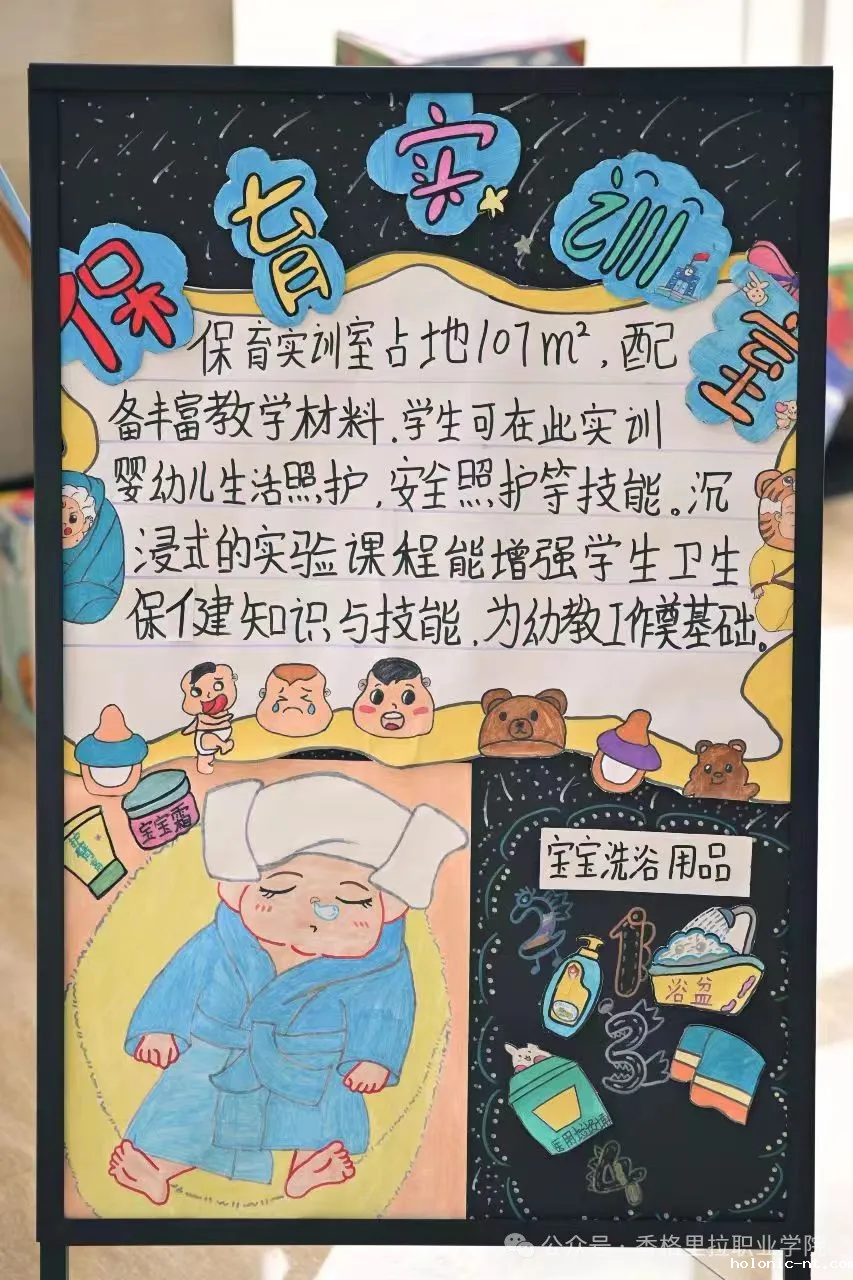 保育实训室
保育实训室占地107m²,配
备丰富教学材料.学生可在此实训
婴幼儿生活照护,安全照护等技能。沉
浸式的实验课程能增强学生卫生
保健知识与技能,为幼教工作奠基础。
宝宝霜
宝宝洗浴用品
2
1
浴盆
3
4
公众号·香格里拉职业学院
holonic-nt.com